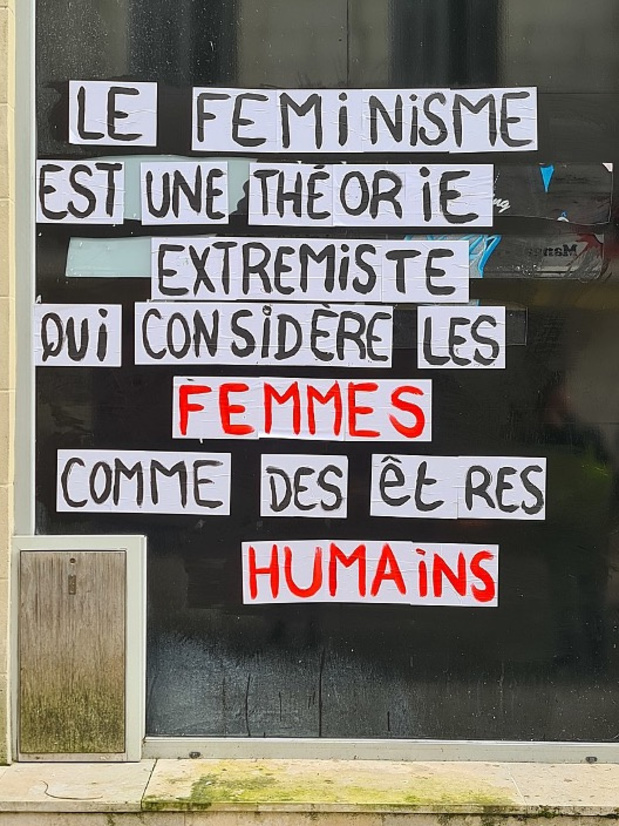 LE FEMiNiSME
EST UNE THÉORiE
EXTREMiSTE
QUi CONSiDÈRE LES
FEMMES
COMME DES êtRES
HUMAiNS